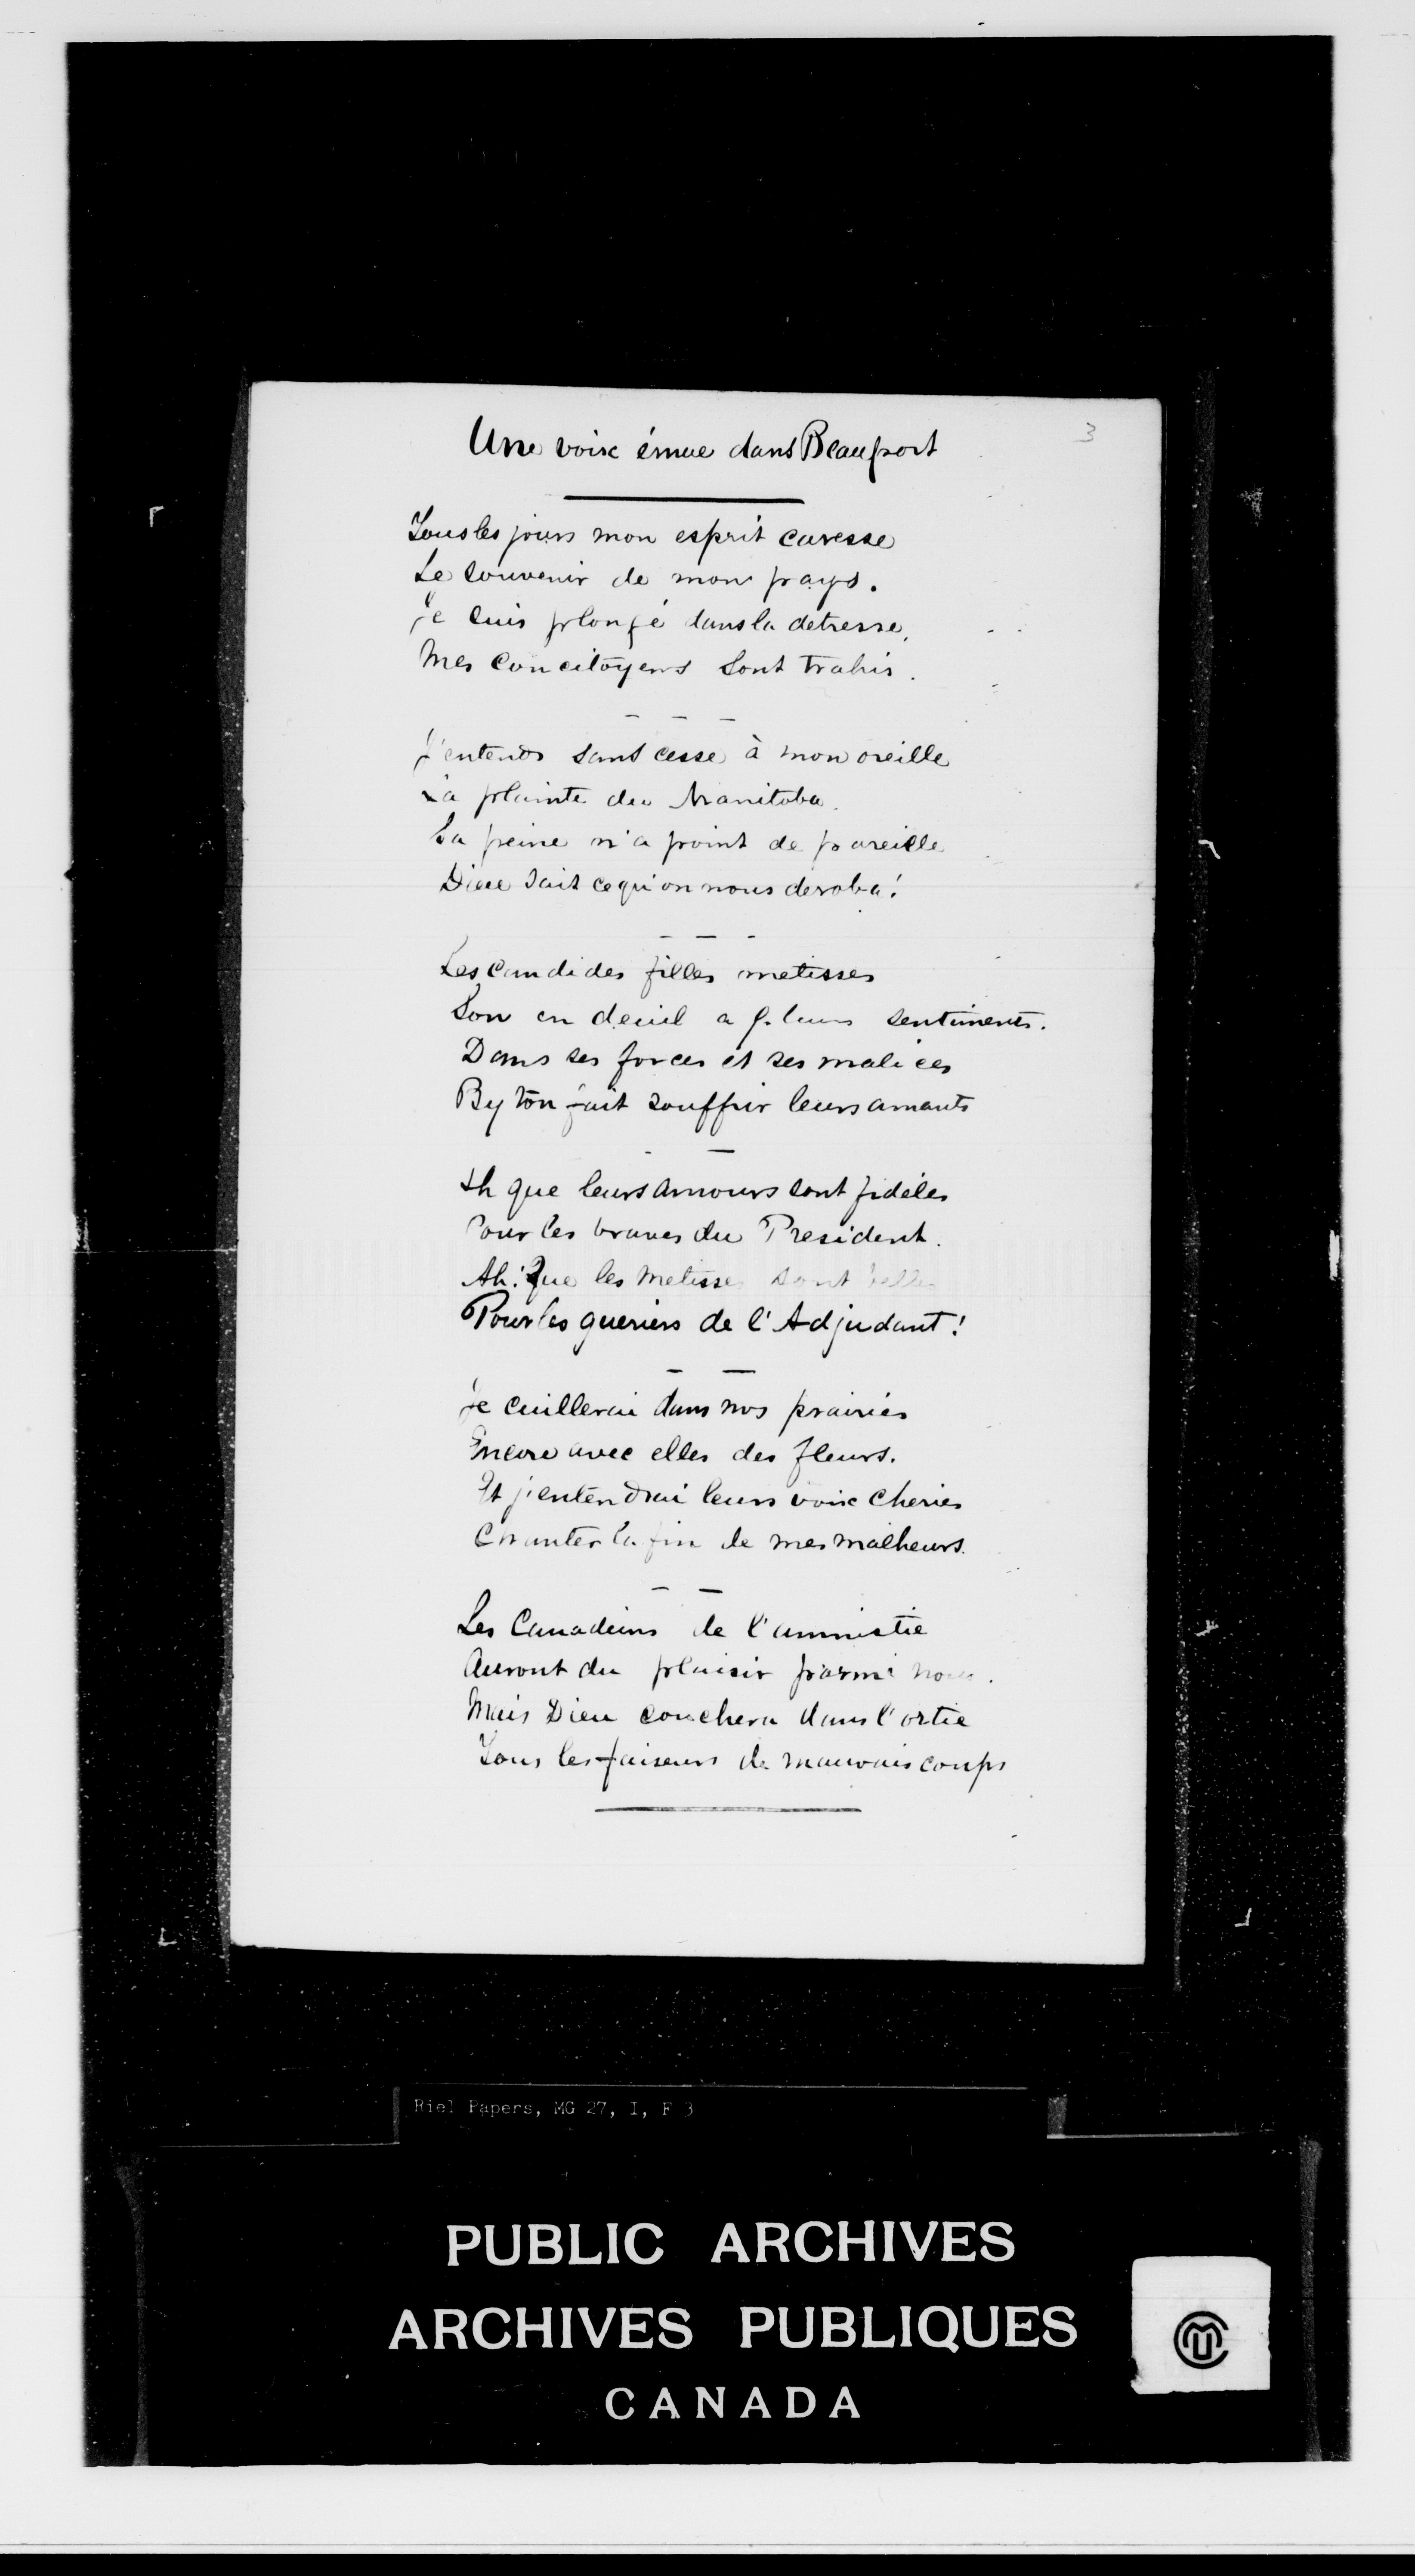 Une voix émue dans Beauport
3
Tous les jours mon esprit caresse
Le souvenir de mon pays.
Je suis plongé dans la detresse,
Mes concitoyens sont trahis.
J'entends sans cesse à mon oreille
La plainte du Manitoba.
Sa peine n'a point de pareille
Dieu sait ce qu'on nous deroba!
Les candides filles metisses
Son en deuil a leurs sentiments.
Dans ses forces et ses malices
Byton fait souffrir leurs amants
Ah que leurs amours sont fidèles
Pour les braves du President.
Ah! Que les Metisses sont belles
Pour les gueriers de l'Adjudant!
Je cuillerai dans nos prairies
Encore avec elles des fleurs.
Et j'entendrai leurs voix cheries
Chanter la fin de mes malheurs.
Les Canadiens de l'amnistie
Auront du plaisir parmi nous.
Mais Dieu couchera dans l'ortie
Tous les faiseurs de mauvais coups
Riel Papers, MG 27, I, F 3
PUBLIC ARCHIVES
ARCHIVES PUBLIQUES
CANADA